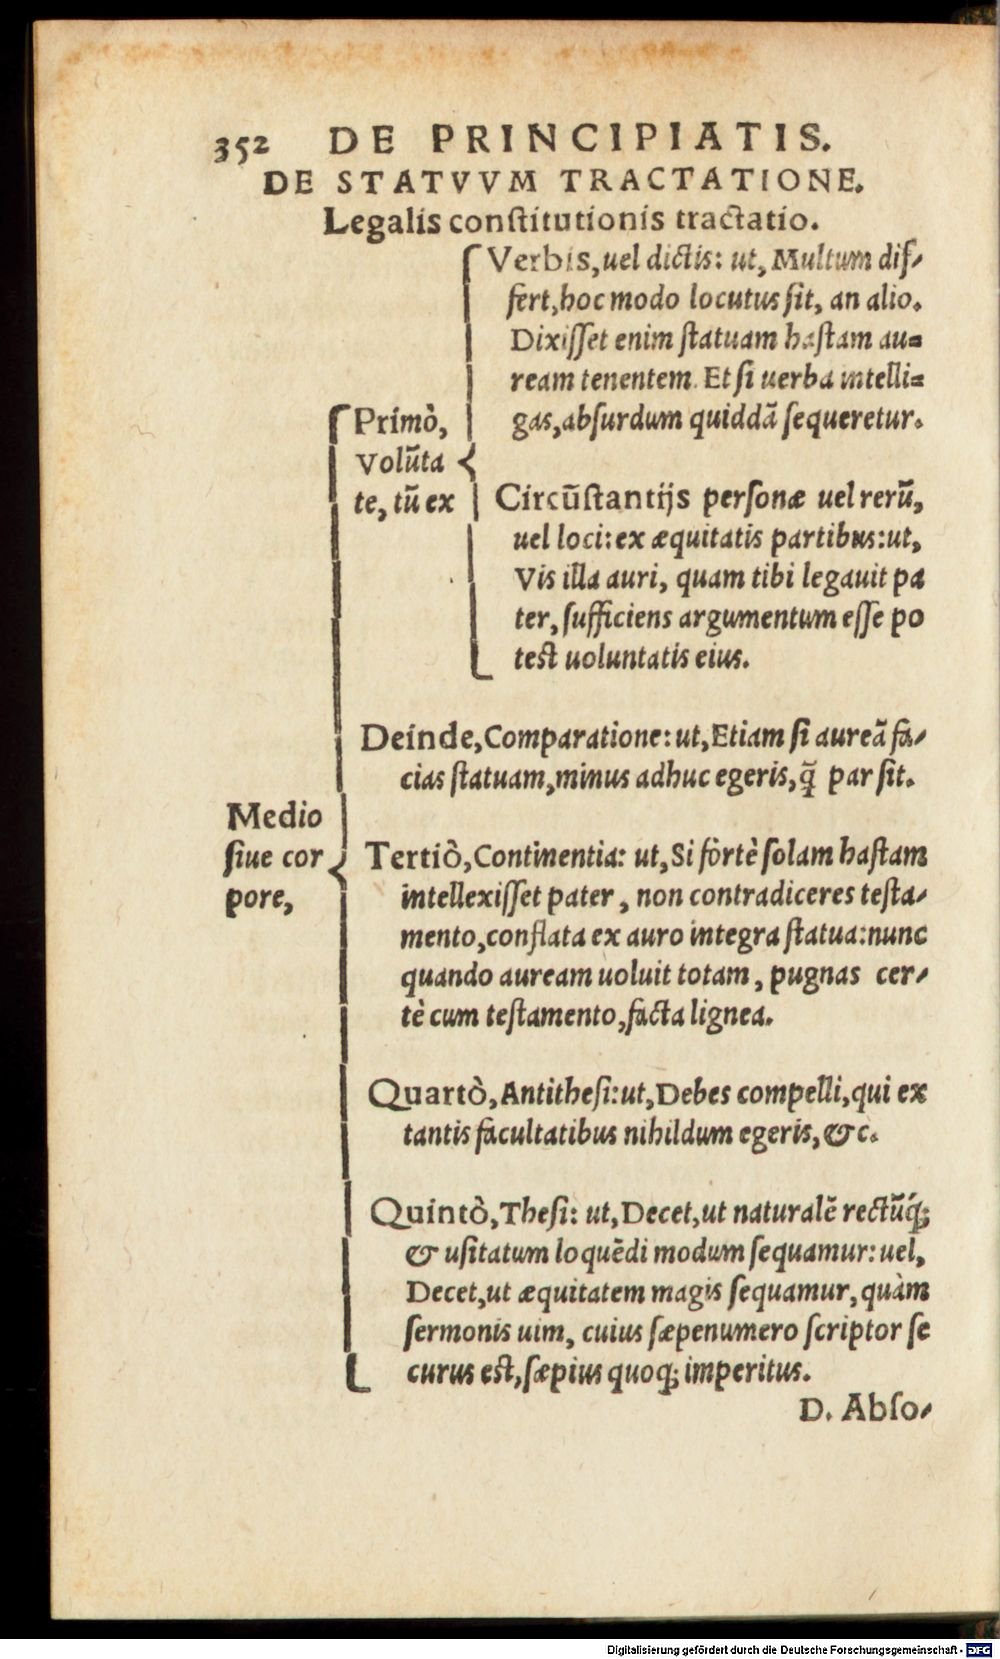 352 DE PRINCIPIATIS.
DE STATVVM TRACTATIONE.
Legalis conſtitutionis tractatio.
Verbis, uel dictis: ut, Multum dif-
fert, hoc modo locutus ſit, an alio.
Dixiſſet enim ſtatuam haſtam au=
ream tenentem. Et ſi uerba intelli=
gas, abſurdum quiddã ſequeretur.
Primò,
Volũta
te, tũ ex
Circũſtantijs perſonæ uel rerũ,
uel loci: ex æquitatis partibus: ut,
Vis illa auri, quam tibi legauit pa
ter, ſufficiens argumentum eſſe po
teſt uoluntatis eius.
Deinde, Comparatione: ut, Etiam ſi aureã fa-
cias ſtatuam, minus adhuc egeris, q̃ par ſit.
Medio
ſiue cor
pore,
Tertiò, Continentia: ut, Si fortè ſolam haſtam
intellexiſſet pater, non contradiceres teſta-
mento, conflata ex auro integra ſtatua: nunc
quando auream uoluit totam, pugnas cer-
tè cum teſtamento, facta lignea.
Quartò, Antitheſi: ut, Debes compelli, qui ex
tantis facultatibus nihildum egeris, &c.
Quintò, Theſi: ut, Decet, ut naturalẽ rectũq́;
& uſitatum loquẽdi modum ſequamur: uel,
Decet, ut æquitatem magis ſequamur, quàm
ſermonis uim, cuius ſæpenumero ſcriptor ſe
curus eſt, ſæpius quoq; imperitus.
D. Abſo-
Digitalisierung gefördert durch die Deutsche Forschungsgemeinschaft - DFG